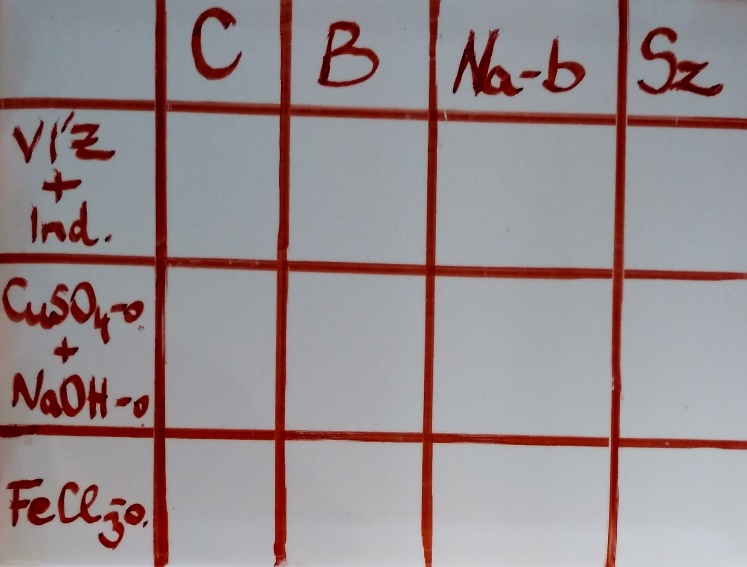 C B Na-b Sz
VÍZ
+
Ind.
CuSO₄-o.
+
NaOH-o
FeCl₃-o.